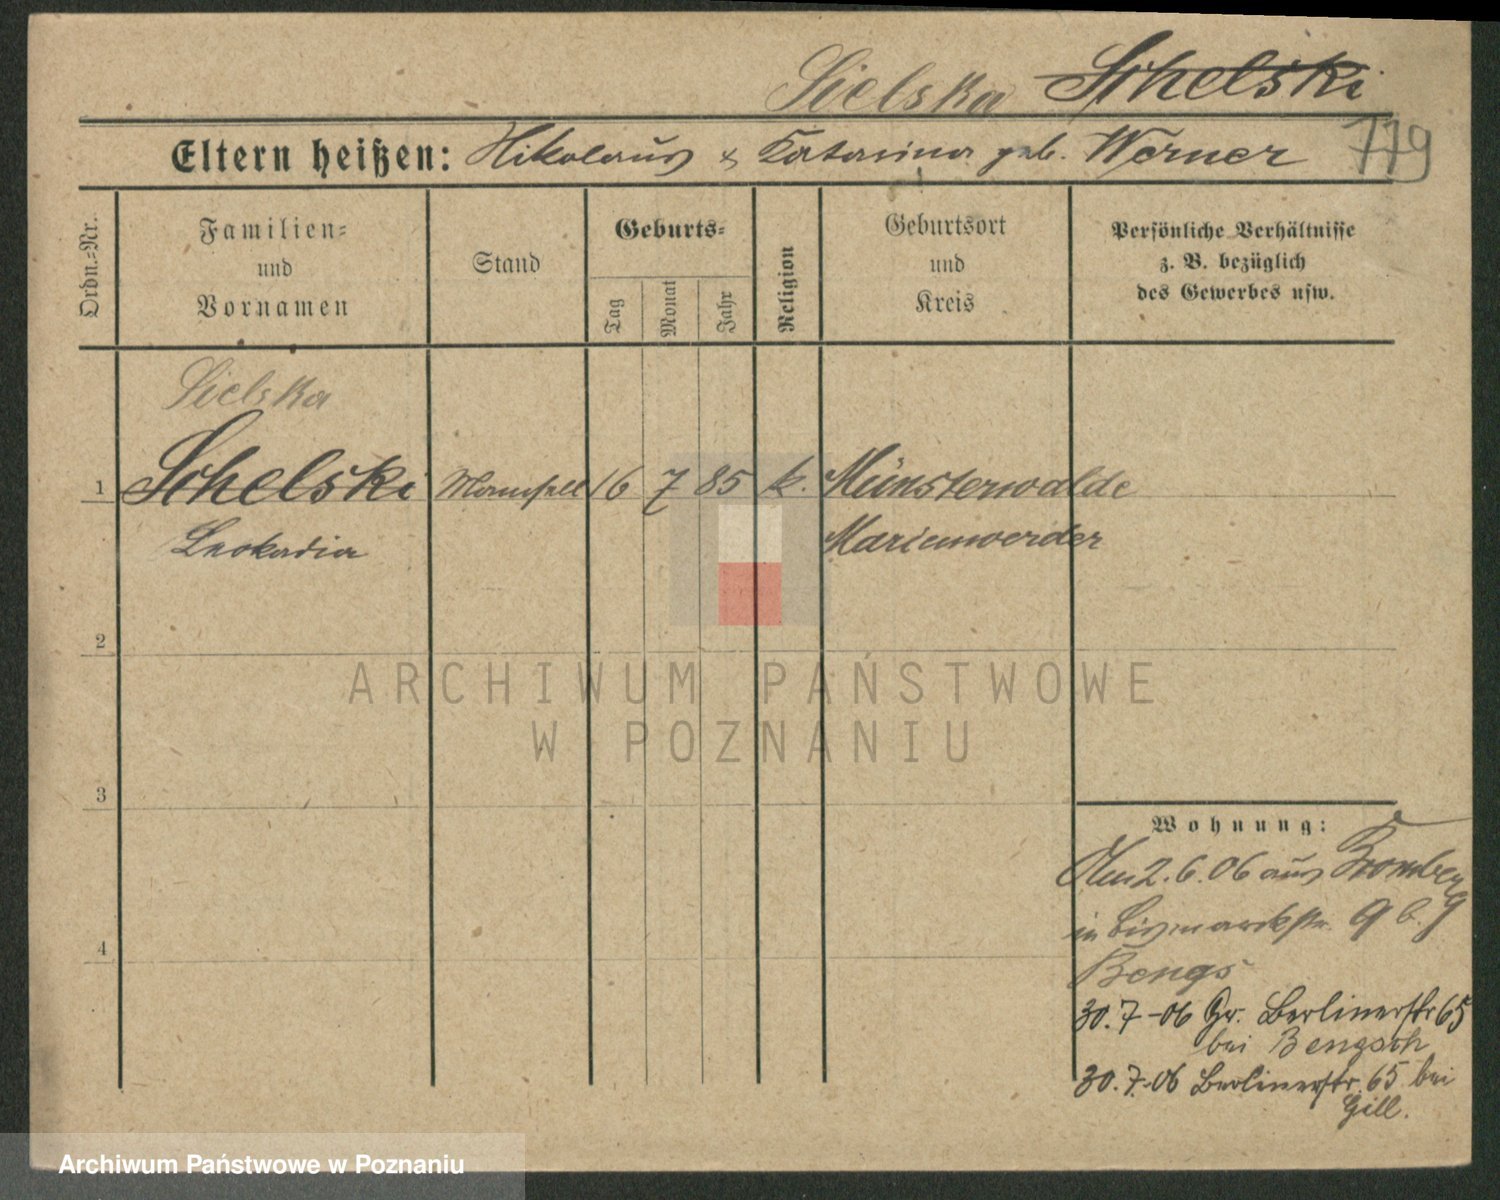 Sielska Schelski
Eltern heißen: Nikolaus & Katarina geb. Werner 779
Ordn.-Nr.
Familien-
und
Vornamen
Stand
Geburts-
Tag
Monat
Jahr
Religion
Geburtsort
und
Kreis
Persönliche Verhältnisse
z. B. bezüglich
des Gewerbes usw.
Sielska
1 Schelski Mamsell 16 7 85 k. Münsterwalde
Leokadia Marienwerder
2
ARCHIWUM PAŃSTWOWE
W POZNANIU
3
Wohnung:
2.6.06 aus Bromberg
in Bismarckstr. 9 b.
Bengs
4
30.7-06 Gr. Berlinerstr 65
bei Bengsch
30.7.06 Berlinerstr. 65 bei
Gill.
Archiwum Państwowe w Poznaniu